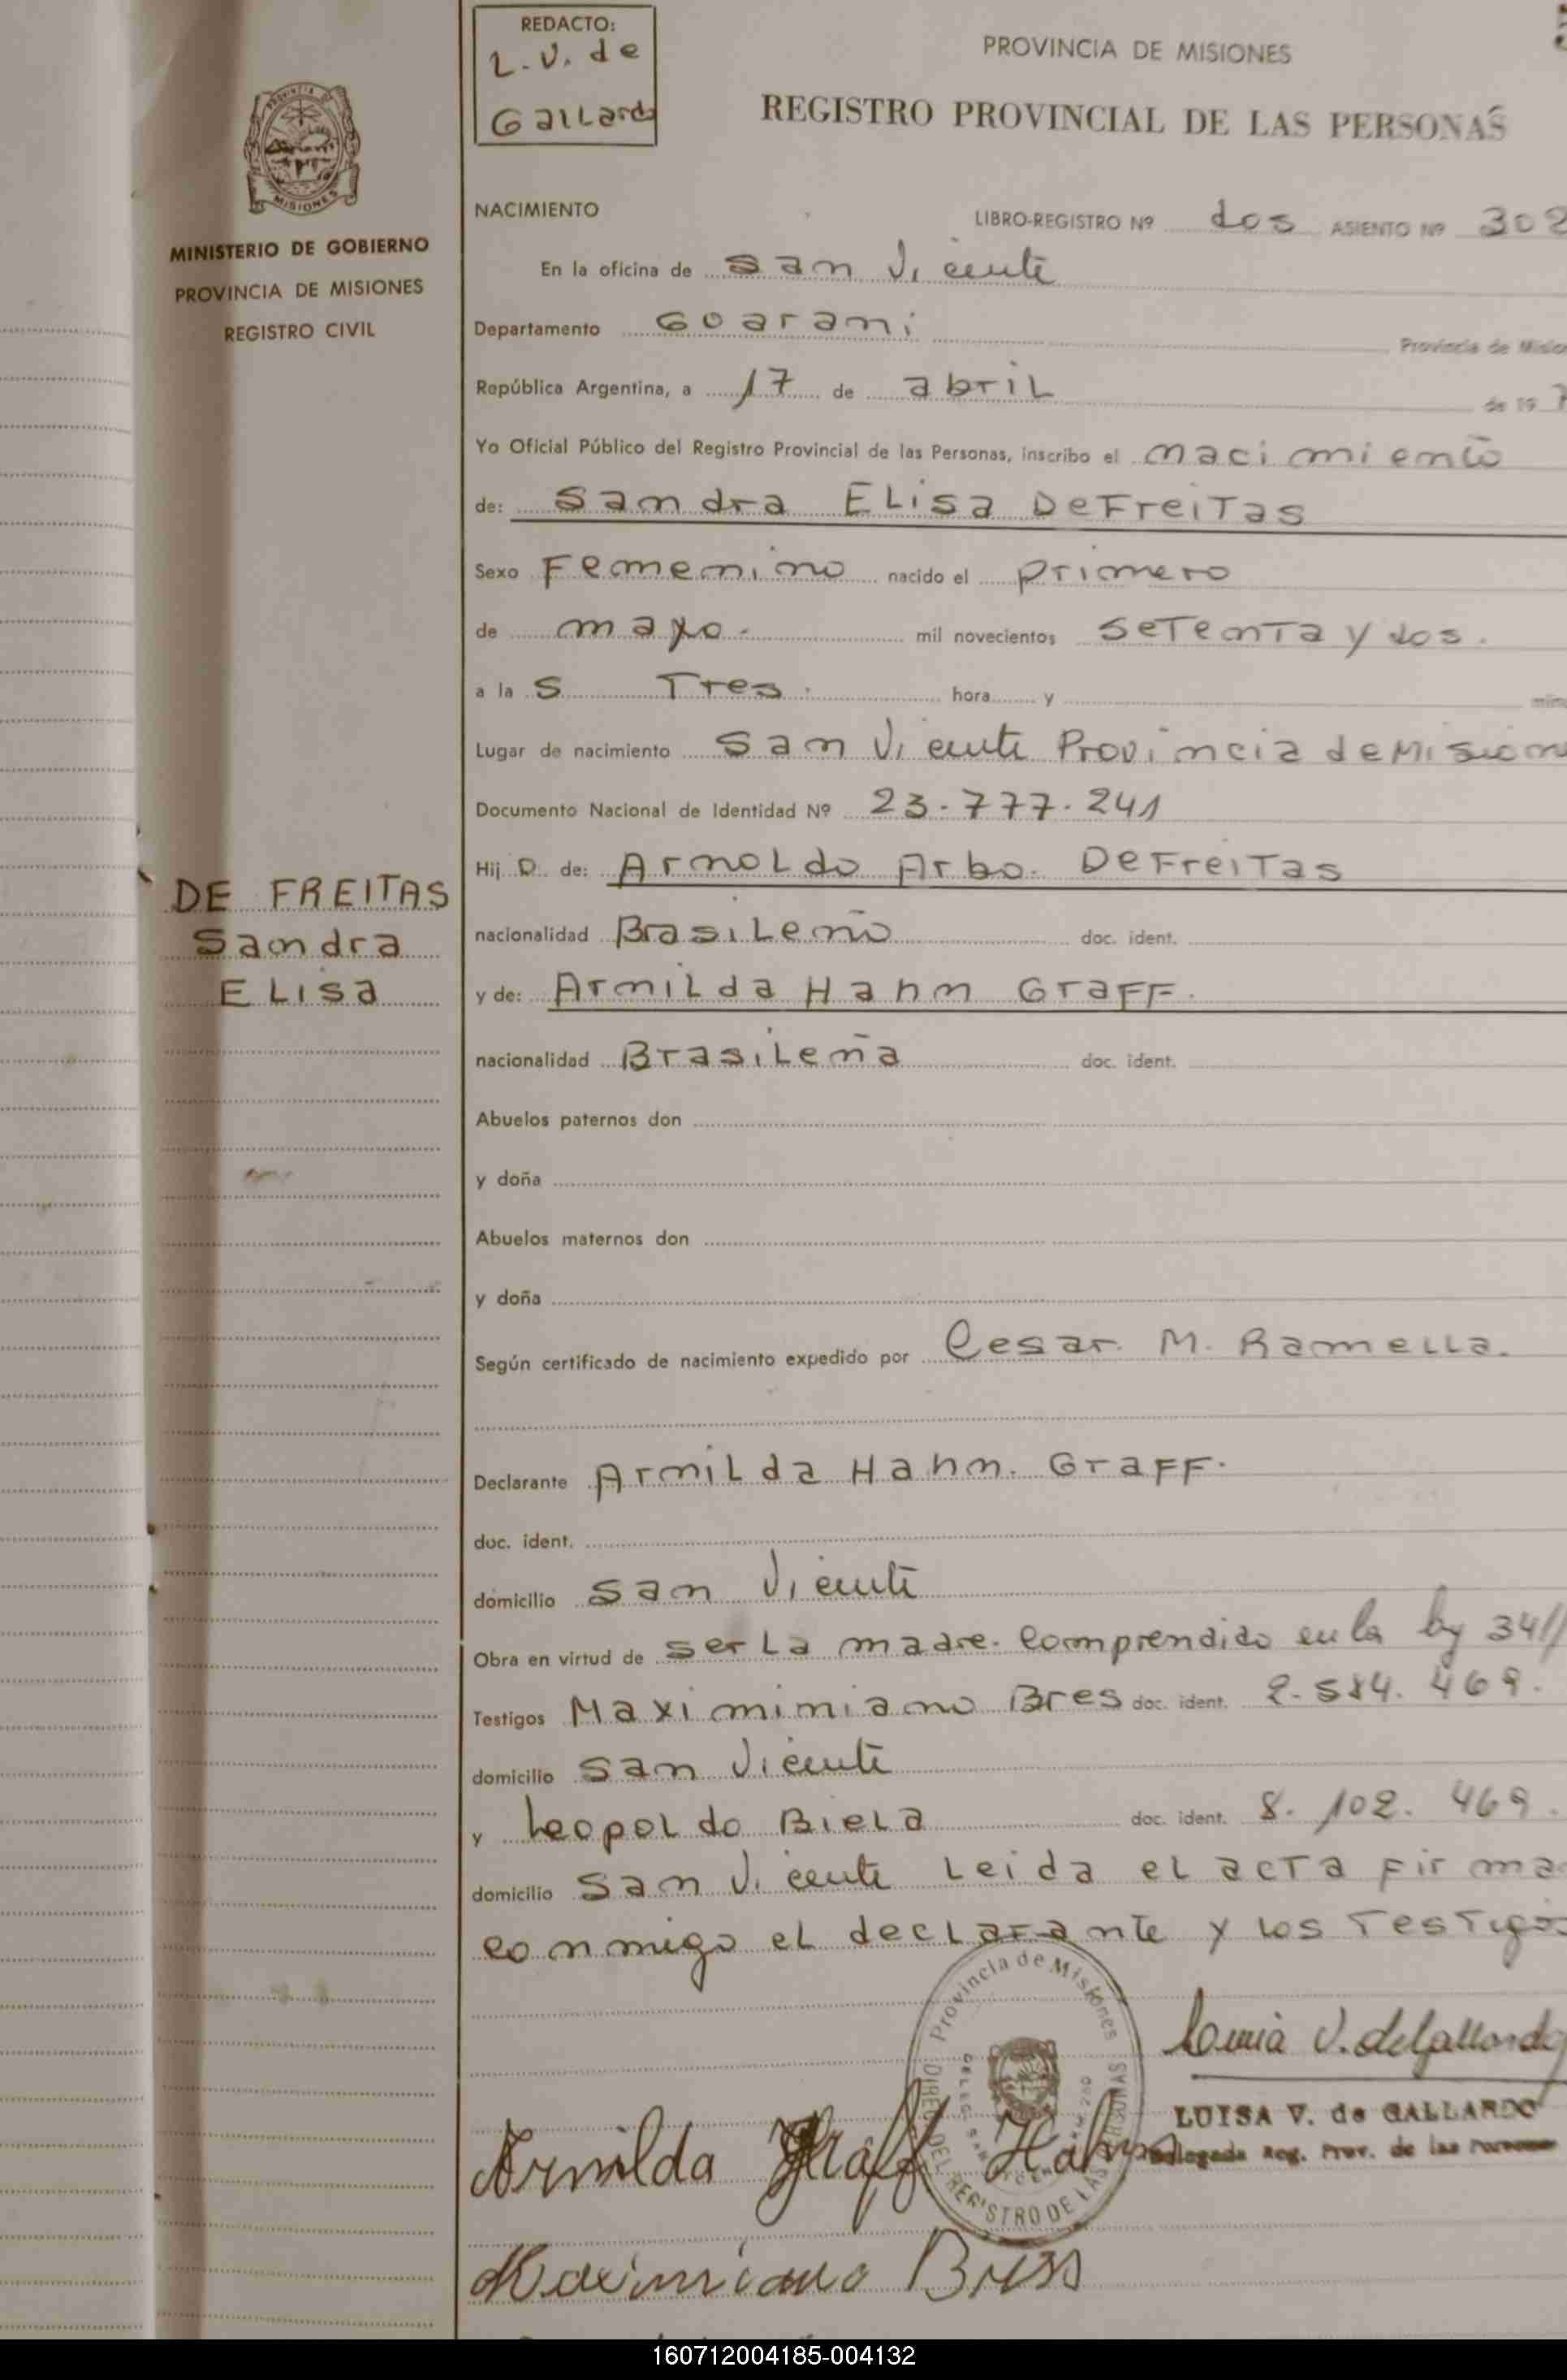 REDACTO:
L. V. de
Gallardo
PROVINCIA DE MISIONES
REGISTRO PROVINCIAL DE LAS PERSONAS
MISIONES
MINISTERIO DE GOBIERNO
PROVINCIA DE MISIONES
REGISTRO CIVIL
NACIMIENTO
LIBRO-REGISTRO Nº dos ASIENTO Nº 302
En la oficina de San Vicente
Departamento Goarani Provincia de Mision
República Argentina, a 17 de abril de 19 7
Yo Oficial Público del Registro Provincial de las Personas, inscribo el nacimiento
de: Sandra Elisa DeFreitas
Sexo Femenino nacido el primero
de mayo. mil novecientos setenta y dos.
a la s Tres. hora y minu
Lugar de nacimiento San Vicente Provincia de Mision
Documento Nacional de Identidad Nº 23.777.241
Hij a de: Arnoldo Arbo. DeFreitas
nacionalidad Brasileño doc. ident.
y de: Armilda Hahn Graff.
nacionalidad Brasileña doc. ident.
DE FREITAS
Sandra
Elisa
Abuelos paternos don
y doña
Abuelos maternos don
y doña
Según certificado de nacimiento expedido por Cesar. M. Ramella.
Declarante Armilda Hahn. Graff.
doc. ident.
domicilio San Vicente
Obra en virtud de ser la madre. Comprendido en la ley 341
Testigos Maximiniano Bres doc. ident. 2.584.469.
domicilio San Vicente
y Leopoldo Biela doc. ident. 8.102.469.
domicilio San Vicente Leida el acta firma
conmigo el declarante y los testigos
Provincia de Misiones
DIREC. DEL REGISTRO DE LAS PERSONAS
Luisa V. de Gallardo
LUISA V. de GALLARDO
Delegada Reg. Prov. de las Personas
Armilda Graff Hahn
Maximiniano Bres
160712004185-004132